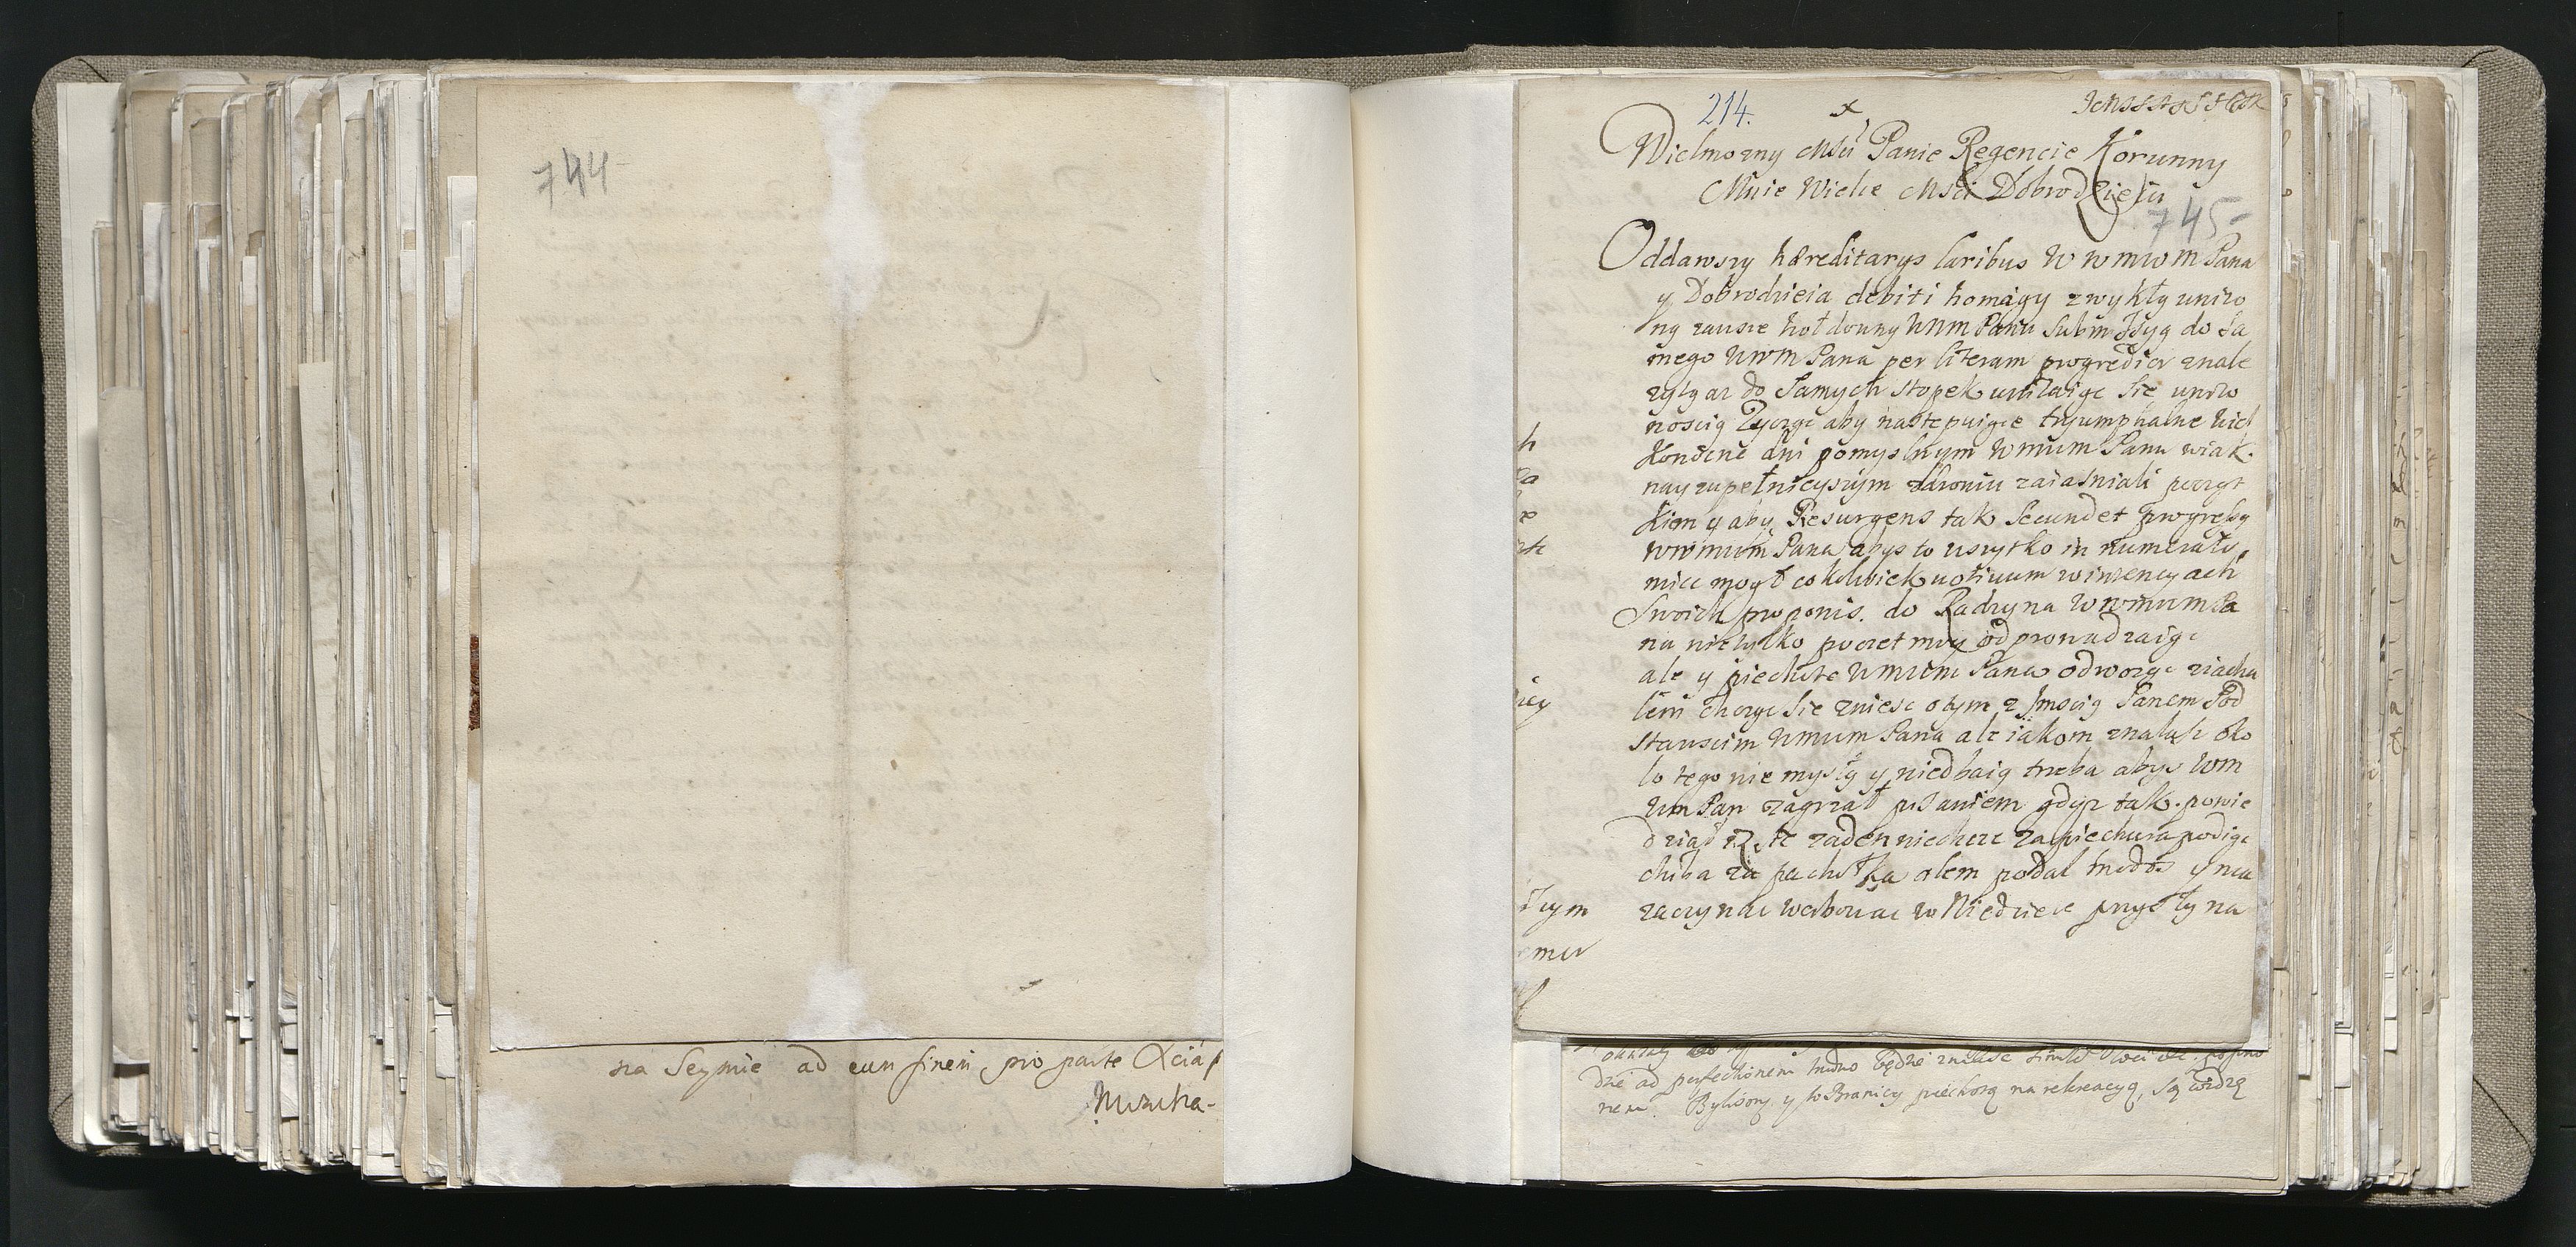 744
na Seymie ad eum finem pro parte Xcia
214.
x
Wielmozny Msci Panie Regencie Korunny
Mnie Wielce Msci Dobrodzieiu
745
Oddawszy hæreditarys laribus W w mw m Pana
y Dobrodzieia debiti homagy zwykły unizo
ny zawsze hołdowny Wmm Panu do Sa
mego Wwm Pana per literam progredior znale
do Samych stopek się unizo
noscią Zycząc aby następuiące tryumphalne Wiel
Konocne dni pomyslnym Wmum Panu wiak
nay zupełnieyszym zdrowiu zaiasniali
kiem y aby Resurgens tak secundet progressy
Wwmum Pana abys to wszytko in numerato
miec mogł cokolwiek votiuum winzencyach
Swoich proponis. do Radzyna Wwmum Pa
na nietylko poczet moy odprowadzaiąc
ale y piechote Wmum Pana odwoząc ziacha
łem chcąc się zniesc o tym z Jmscią Panem Pod
Staroscim Wmum Pana ale iakom znalazł oko
lo tego nie myslą y niedbaią trzeba abys Wm
Wm Pan zagrzał pisaniem gdyz tak powie
dział ze zaden niechce za piechura podiąc
chiba za pachołka alem podał y ma
zaczynac werbowac w Niedziele przyszłą na
h
za
niey
mu
dzie ad perfectionem trudno będzie
nem. Byliśmy y w Branicy piechotą na rekreacyą, są widzę